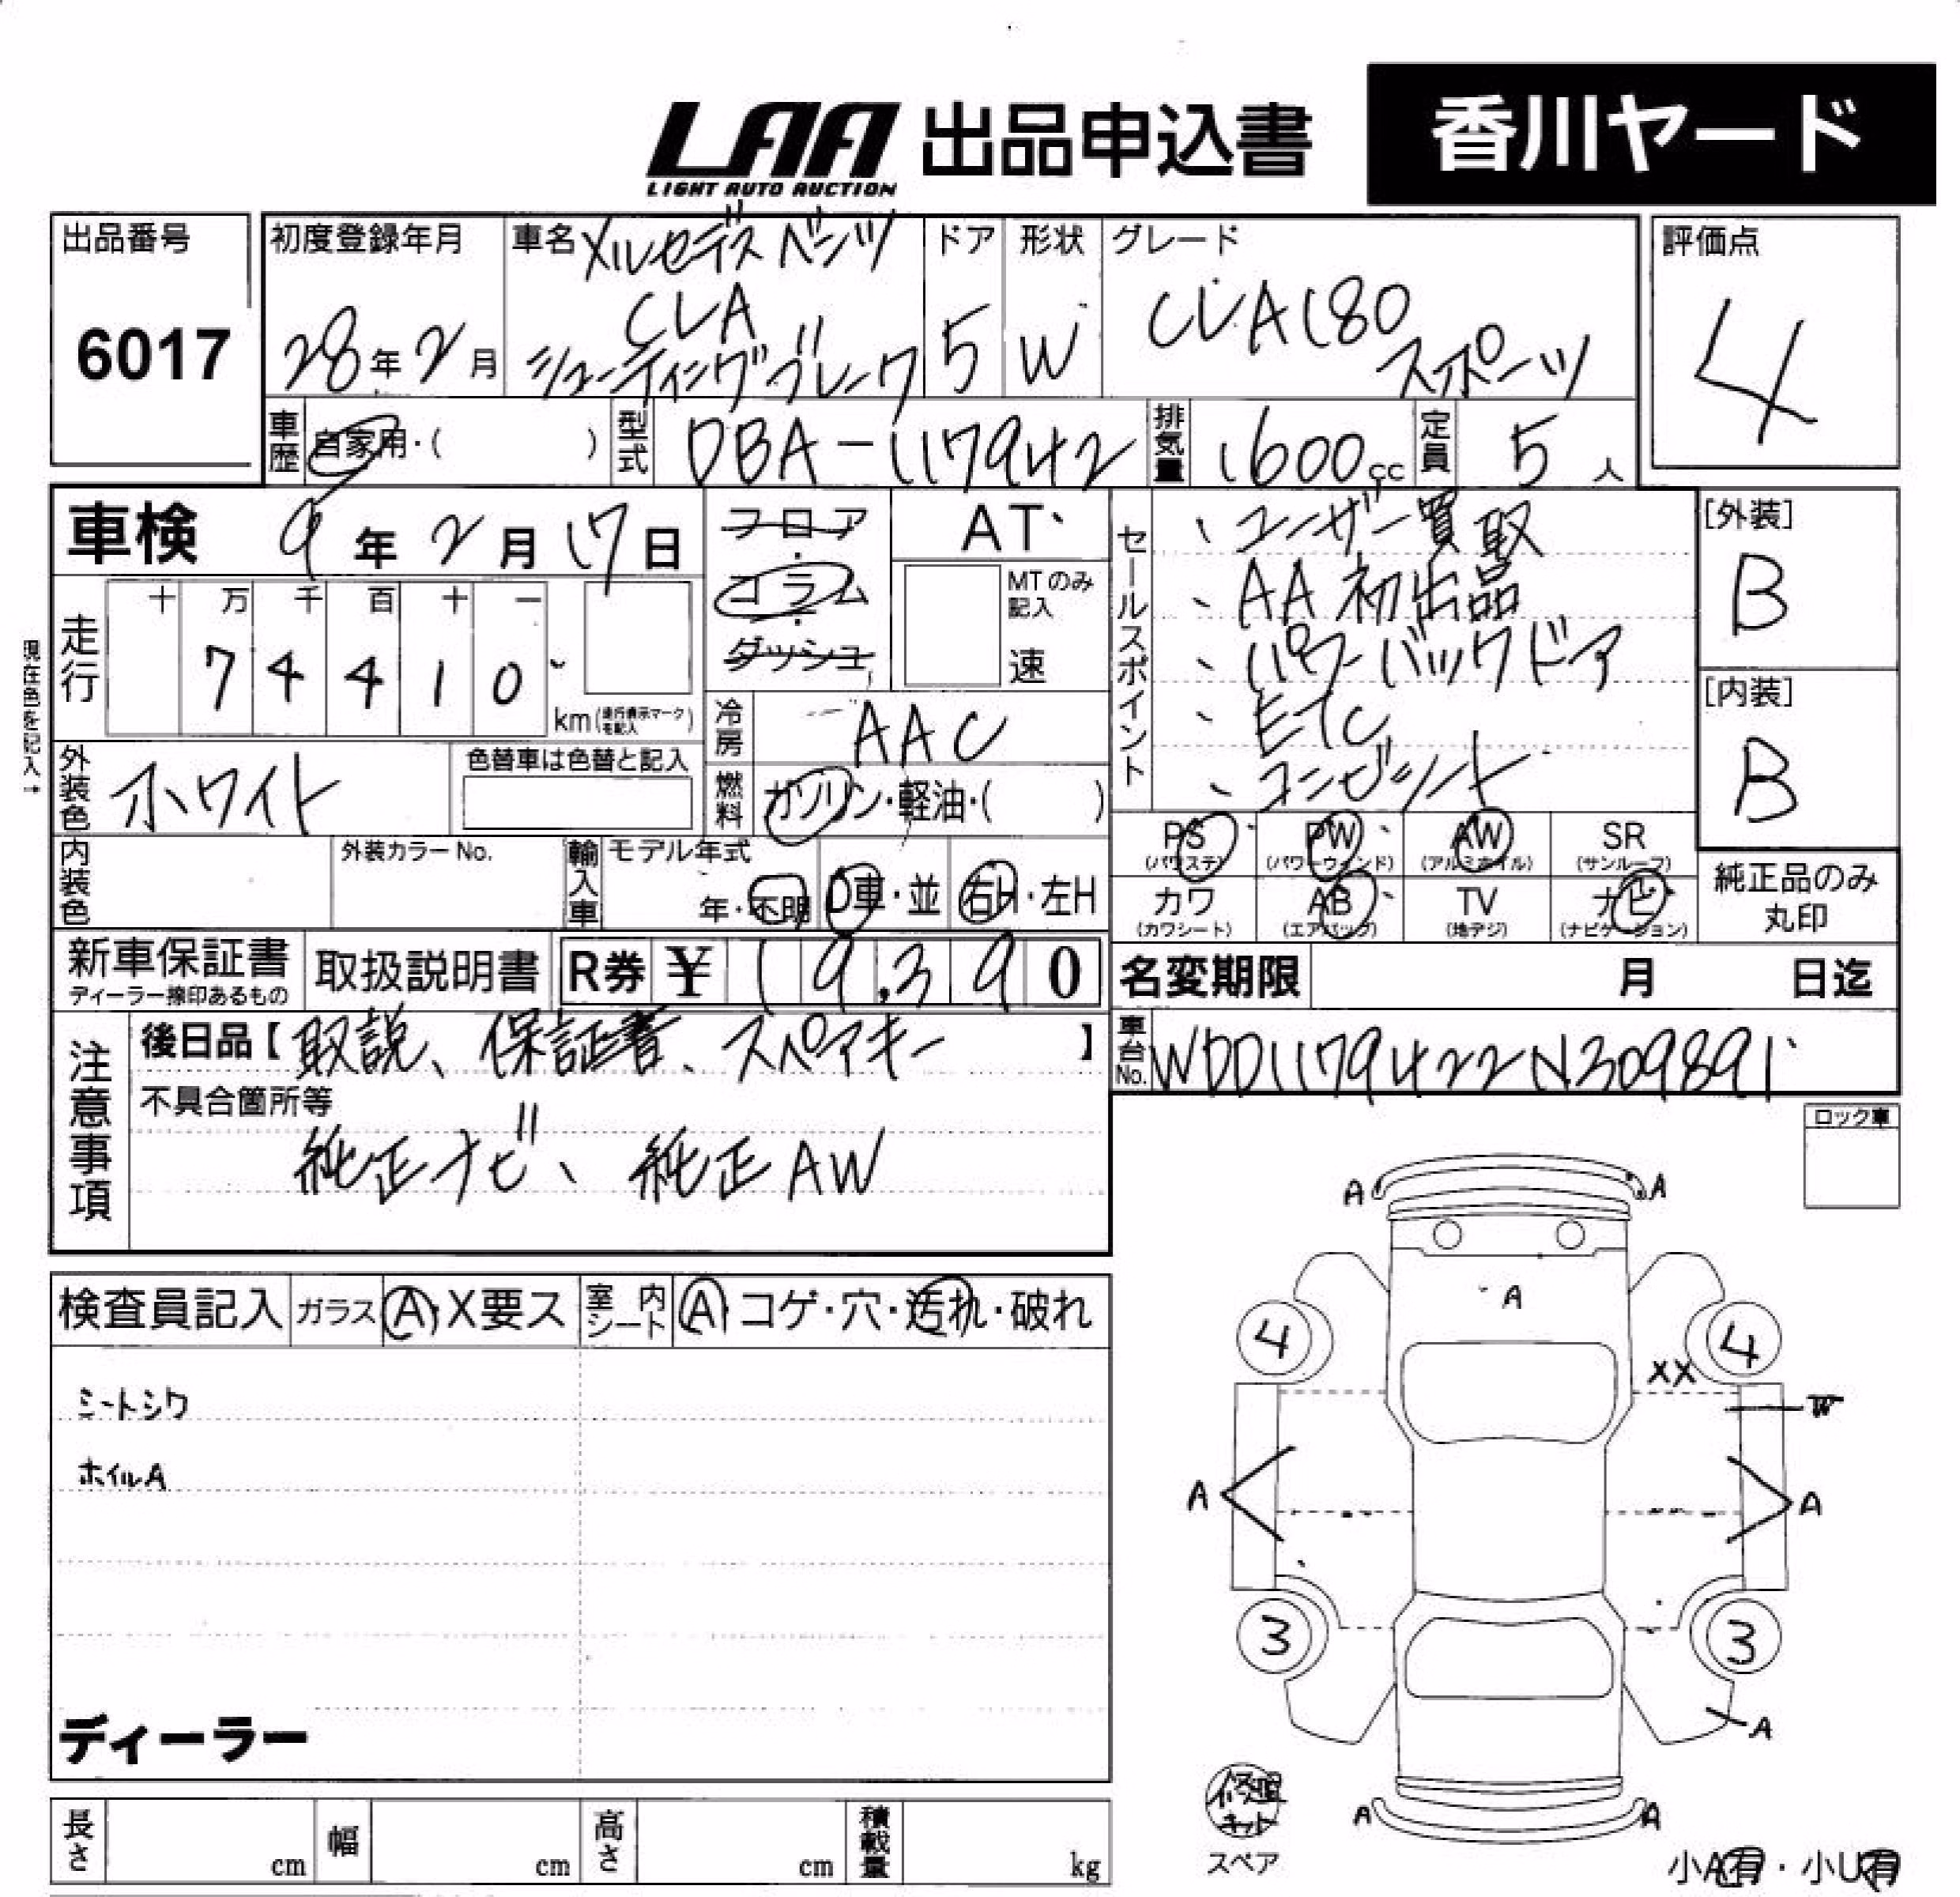 LAA 出品申込書 香川ヤード
LIGHT AUTO AUCTION
出品番号 初度登録年月 車名 メルセデスベンツ ドア 形状 グレード 評価点
6017 28年2月 CLA 5 W CLA180 4
シューティングブレーク スポーツ
車歴 自家用・( ) 型式 DBA-117942 排気量 1600cc 定員 5人
車検 9年2月17日 フロア・コラム・ダッシュ AT
MTのみ記入 速
セールスポイント
、ユーザー買取
、AA初出品
、パワーバックドア
、ETC
、コンビシート
[外装]
B
[内装]
B
現在色を記入→
走行 十 万 千 百 十 一
7 4 4 1 0
km(走行表示マークを記入)
冷房 AAC
外装色 ホワイト 色替車は色替と記入
燃料 ガソリン・軽油・( )
PS PW AW SR
(パワステ) (パワーウィンド) (アルミホイル) (サンルーフ)
カワ AB TV ナビ
(カワシート) (エアバック) (地デジ) (ナビゲーション)
純正品のみ
丸印
内装色 外装カラーNo. 輸入車 モデル年式
年・不明 D車・並 右H・左H
新車保証書 取扱説明書 R券 ¥ 19,390
ディーラー捺印あるもの
名変期限 月 日迄
車台No. WDD1179422N309891
注意事項
後日品【取説、保証書、スペアキー】
不具合箇所等
純正ナビ、純正AW
ロック車
検査員記入 ガラス A・X要ス 室内シート A・コゲ・穴・汚れ・破れ
シートシワ
ホイルA
ディーラー
A A
A
4 4
XX
W
A A
3 3
A
A A
修理
キット
スペア
小A有・小U有
長さ cm 幅 cm 高さ cm 積載量 kg